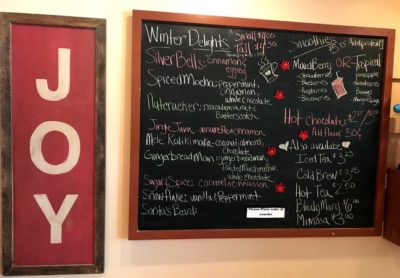 JOY
Winter Delights
Small $4.00
Tall $4.50
Silver Bells: cinnamon, eggnog
Spiced Mocha: peppermint,
cinnamon
white chocolate
Nutcracker: macadamia nut
Butterscotch
Jingle Java: amaretto cinnamon
Mele Kalikimaka: coconut, almond,
chocolate
Gingerbread Man: gingerbread
Toasted Marshmallow,
white chocolate
Sugar & Spice: caramel cinnamon
Snowflake: vanilla Peppermint
Santa's Beard:
Please Place order at
counter
Smoothies
Add protein
Mixed Berry OR Tropical
-Strawberries
-Blueberries
-Raspberries
pineapple
strawberries
Banana
Mango
Hot Chocolate
Add Flavor 50¢
Also available
Iced Tea $3.25
Cold Brew $3.25
Hot Tea $2.50
Bloody Mary $6.00
Mimosa $3.00